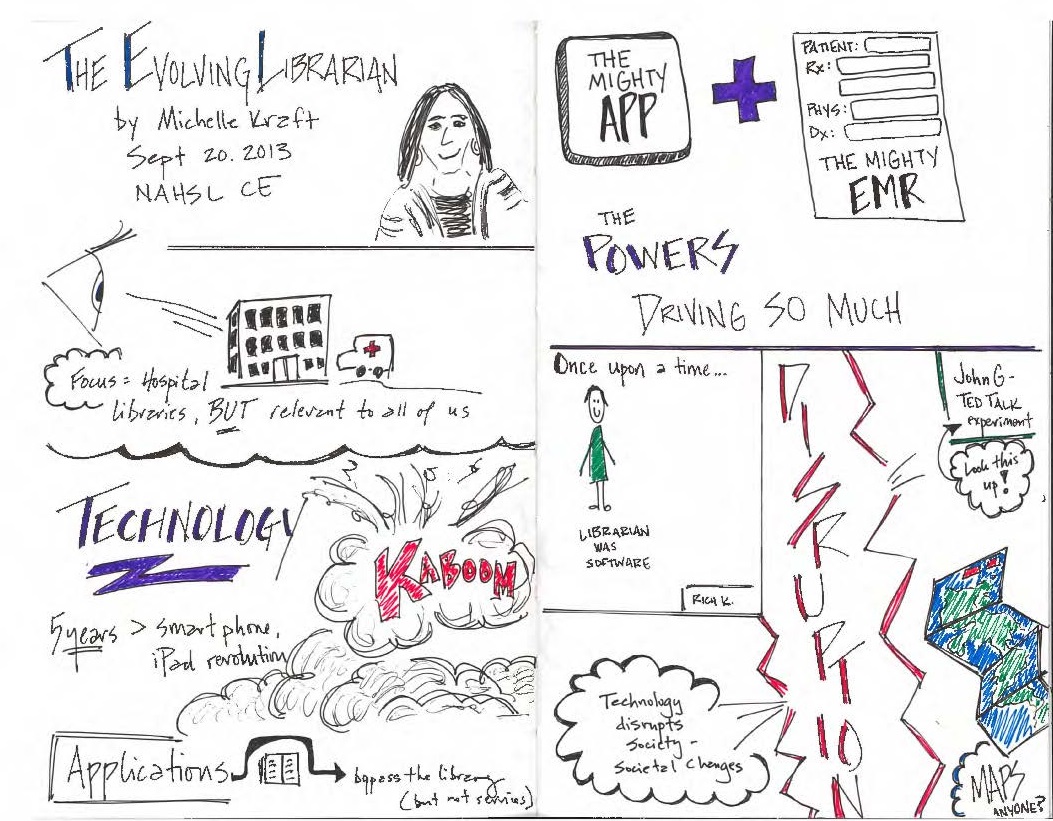 THE EVOLVING LIBRARIAN
by Michelle Kraft
Sept 20. 2013
NAHSL CE
Focus = Hospital
libraries, BUT relevant to all of us
TECHNOLOGY
KABOOM
5 years > smart phone,
iPad revolution
Applications
bypass the library
(but not services)
THE
MIGHTY
APP
PATIENT:
Rx:
PHYS:
Dx:
THE MIGHTY
EMR
THE
POWERS
DRIVING SO MUCH
Once upon a time...
LIBRARIAN
WAS
SOFTWARE
RICH K.
DISRUPTION
John G-
TED TALK
experiment
Look this
up!
Technology
disrupts
Society -
Societal Changes
MAPS
ANYONE?